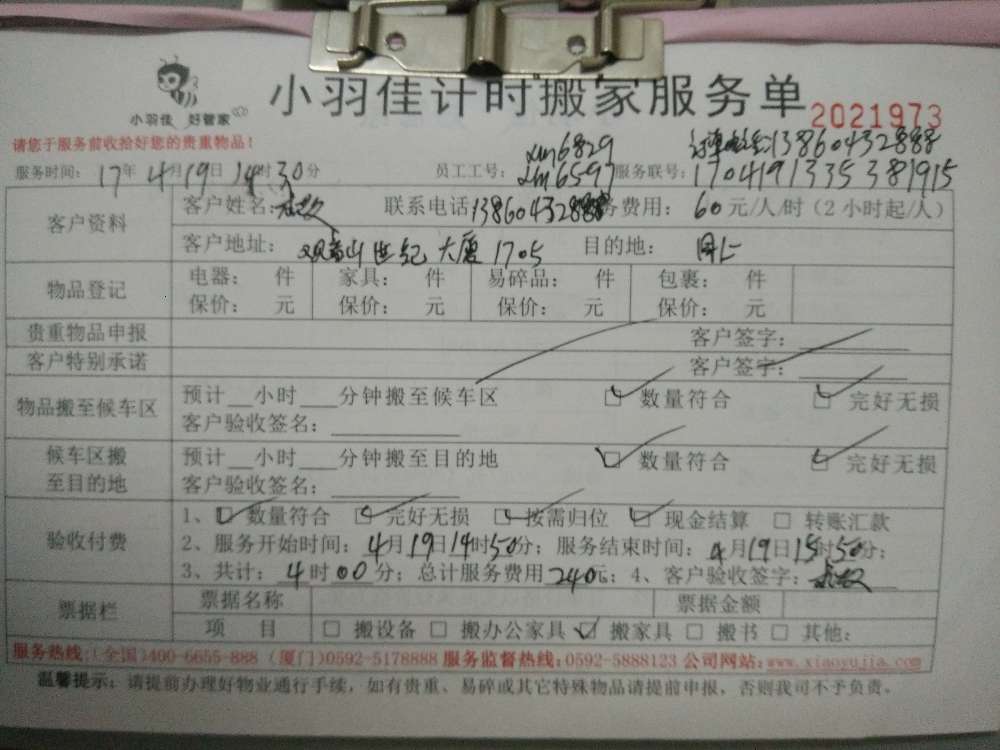 小羽佳 好管家
小羽佳计时搬家服务单 2021973
请您于服务前收拾好您的贵重物品!
xm6829 13860432888
服务时间: 17年4月19日14时30分 员工工号: xm6597 服务联号: 1704191335381915
客户资料 客户姓名: 联系电话 13860432888 务费用: 60元/人/时(2小时起/人)
客户地址: 观音山世纪大厦1705 目的地:
物品登记 电器: 件 家具: 件 易碎品: 件 包裹: 件
保价: 元 保价: 元 保价: 元 保价: 元
贵重物品申报 客户签字:
客户特别承诺 客户签字:
物品搬至候车区 预计__小时___分钟搬至候车区 数量符合 完好无损
客户验收签名:
候车区搬至目的地 预计__小时___分钟搬至目的地 数量符合 完好无损
客户验收签名:
验收付费 1、数量符合 完好无损 按需归位 现金结算 转账汇款
2、服务开始时间: 4月19日14时50分; 服务结束时间: 4月19日15时50分;
3、共计: 4时00分; 总计服务费用 240元; 4、客户验收签字:
票据栏 票据名称 票据金额
项 目 搬设备 搬办公家具 搬家具 搬书 其他:
服务热线:(全国)400-6655-888 (厦门)0592-5178888 服务监督热线:0592-5888123 公司网站:www.xiaoyujia.com
温馨提示: 请提前办理好物业通行手续, 如有贵重、易碎或其它特殊物品请提前申报, 否则我司不予负责。